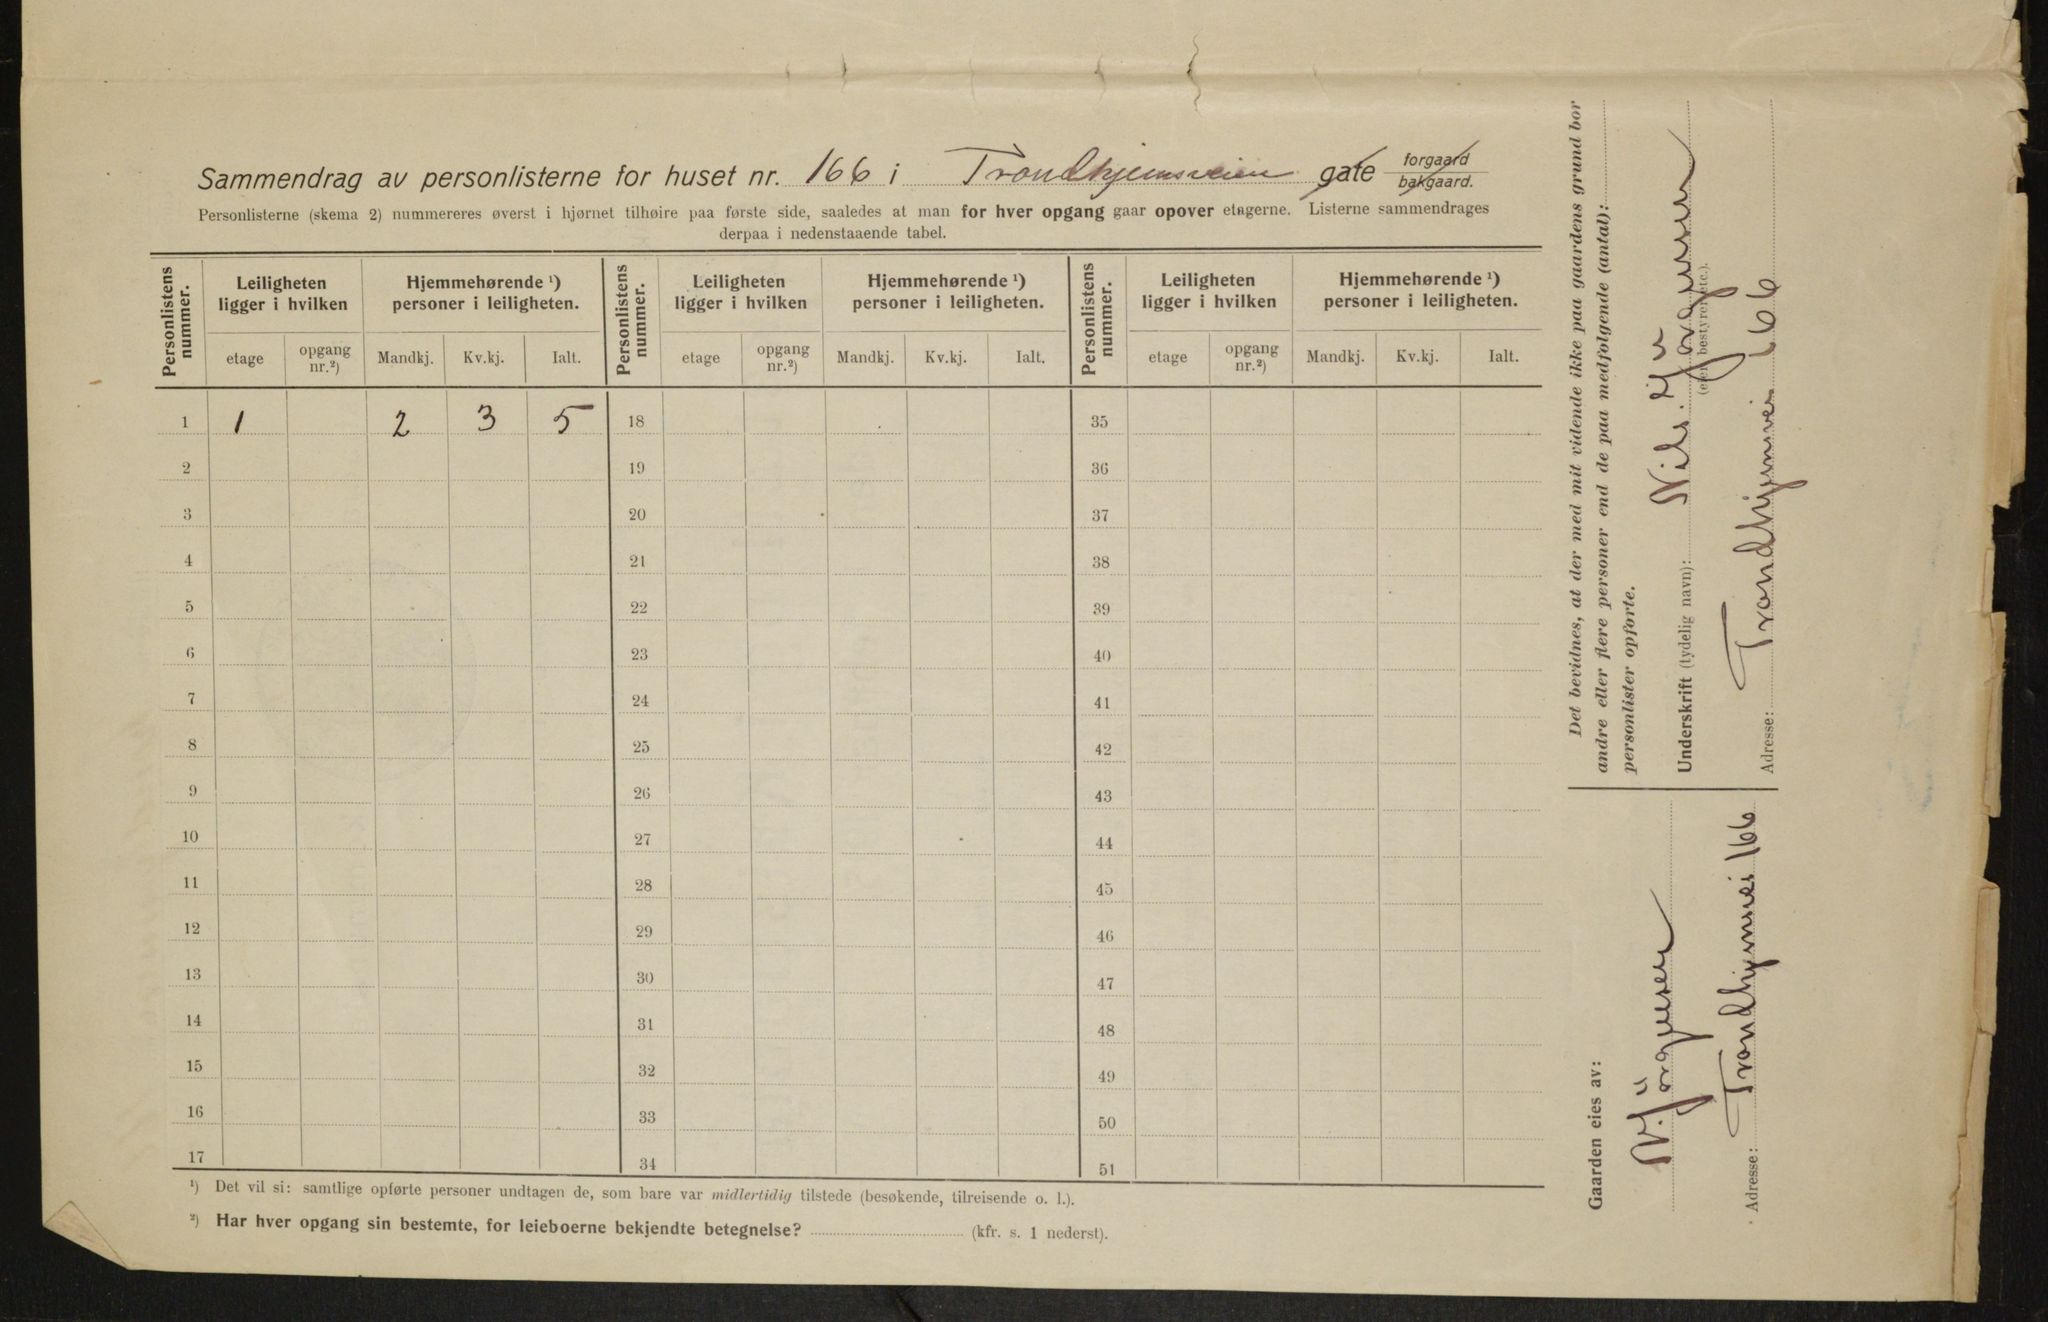 Sammendrag av personlisterne for huset nr. 166 i Trondhjemsveien gate forgaard bakgaard.
Personlisterne (skema 2) nummereres øverst i hjørnet tilhøire paa første side, saaledes at man for hver opgang gaar opover etagerne. Listerne sammendrages
derpaa i nedenstaaende tabel.
Personlistens nummer. Leiligheten ligger i hvilken Hjemmehørende ¹) personer i leiligheten. Personlistens nummer. Leiligheten ligger i hvilken Hjemmehørende ¹) personer i leiligheten. Personlistens nummer. Leiligheten ligger i hvilken Hjemmehørende ¹) personer i leiligheten.
etage opgang nr.²) Mandkj. Kv.kj. Ialt. etage opgang nr.²) Mandkj. Kv.kj. Ialt. etage opgang nr.²) Mandkj. Kv.kj. Ialt.
1 1 2 3 5 18 35
2 19 36
3 20 37
4 21 38
5 22 39
6 23 40
7 24 41
8 25 42
9 26 43
10 27 44
11 28 45
12 29 46
13 30 47
14 31 48
15 32 49
16 33 50
17 34 51
¹) Det vil si: samtlige opførte personer undtagen de, som bare var midlertidig tilstede (besøkende, tilreisende o. l.).
²) Har hver opgang sin bestemte, for leieboerne bekjendte betegnelse? (kfr. s. 1 nederst).
Det bevidnes, at der med mit vidende ikke paa gaardens grund bor
andre eller flere personer end de paa medfølgende (antal):
personlister opførte.
Underskrift (tydelig navn): Nils. Jørgensen
(eier, bestyrer etc.).
Adresse: Trondhjemsvei 166
Gaarden eies av:
N. Jørgensen
Adresse: Trondhjemsvei 166